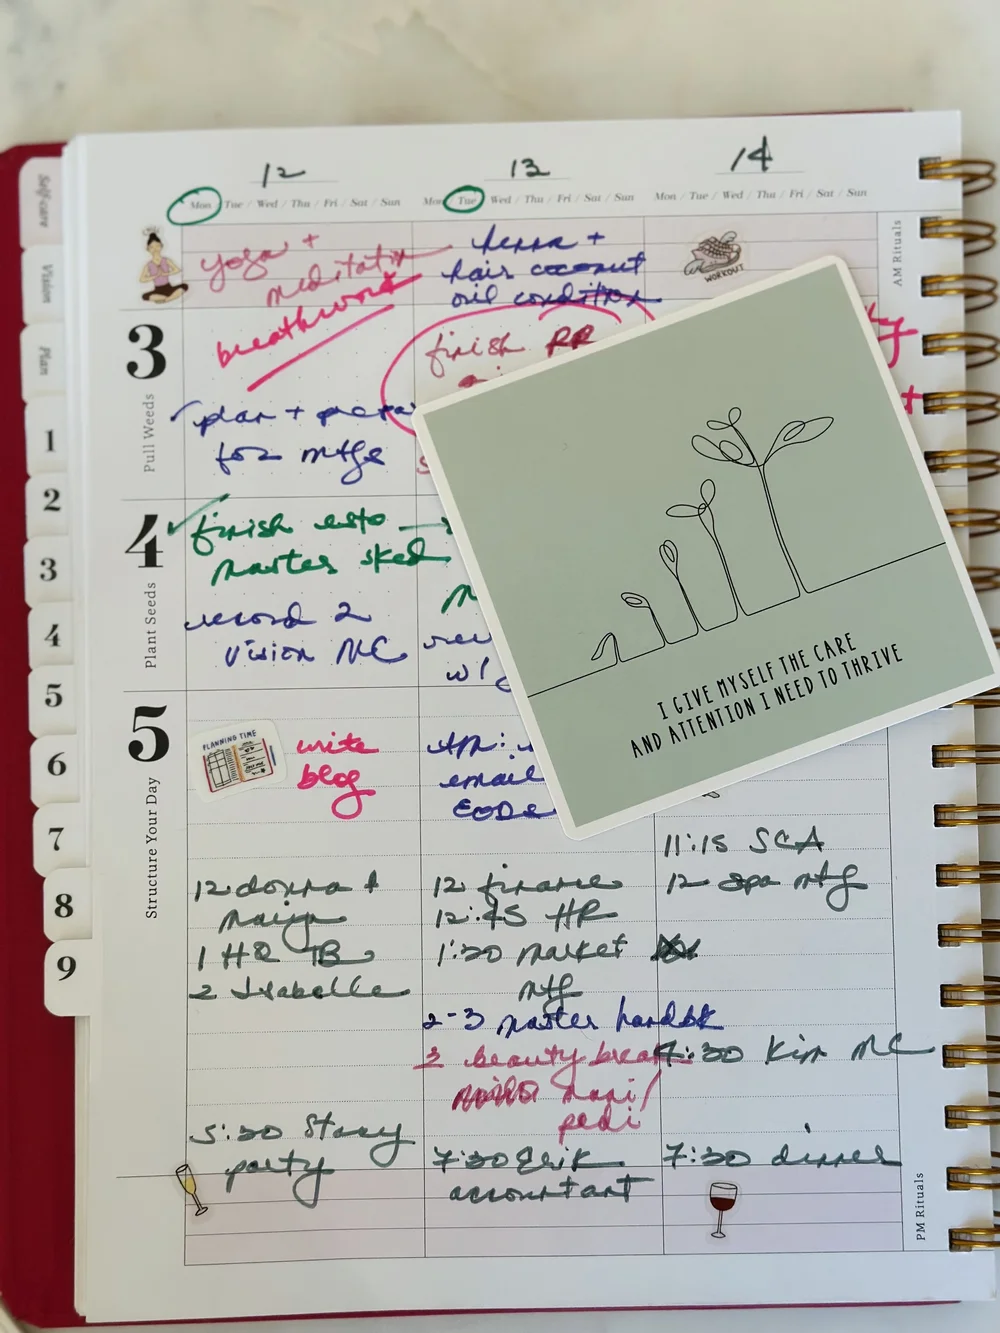 12
13
14
Mon / Tue / Wed / Thu / Fri / Sat / Sun
Mon / Tue / Wed / Thu / Fri / Sat / Sun
Mon / Tue / Wed / Thu / Fri / Sat / Sun
Self-care
Vision
Plan
1
2
3
4
5
6
7
8
9
AM Rituals
yoga +
meditation
breathwork
henna +
hair coconut
oil condition
WORKOUT
3
Pull Weeds
plan + prepa
for mtgs
finish RR
4
Plant Seeds
finish
master sked
record 2
vision MC
w/
5
Structure Your Day
PLANNING TIME
write
blog
email
12 donna +
1 HQ TB
2 Isabelle
5:30 Story
party
12 finance
12:45 HR
1:30 market
mtg
2-3 master handbk
3 beauty break
mani/
pedi
7:30 Erik
accountant
11:15 SCA
12 spa mtg
4:30 Kim MC
7:30 dinner
PM Rituals
I GIVE MYSELF THE CARE
AND ATTENTION I NEED TO THRIVE